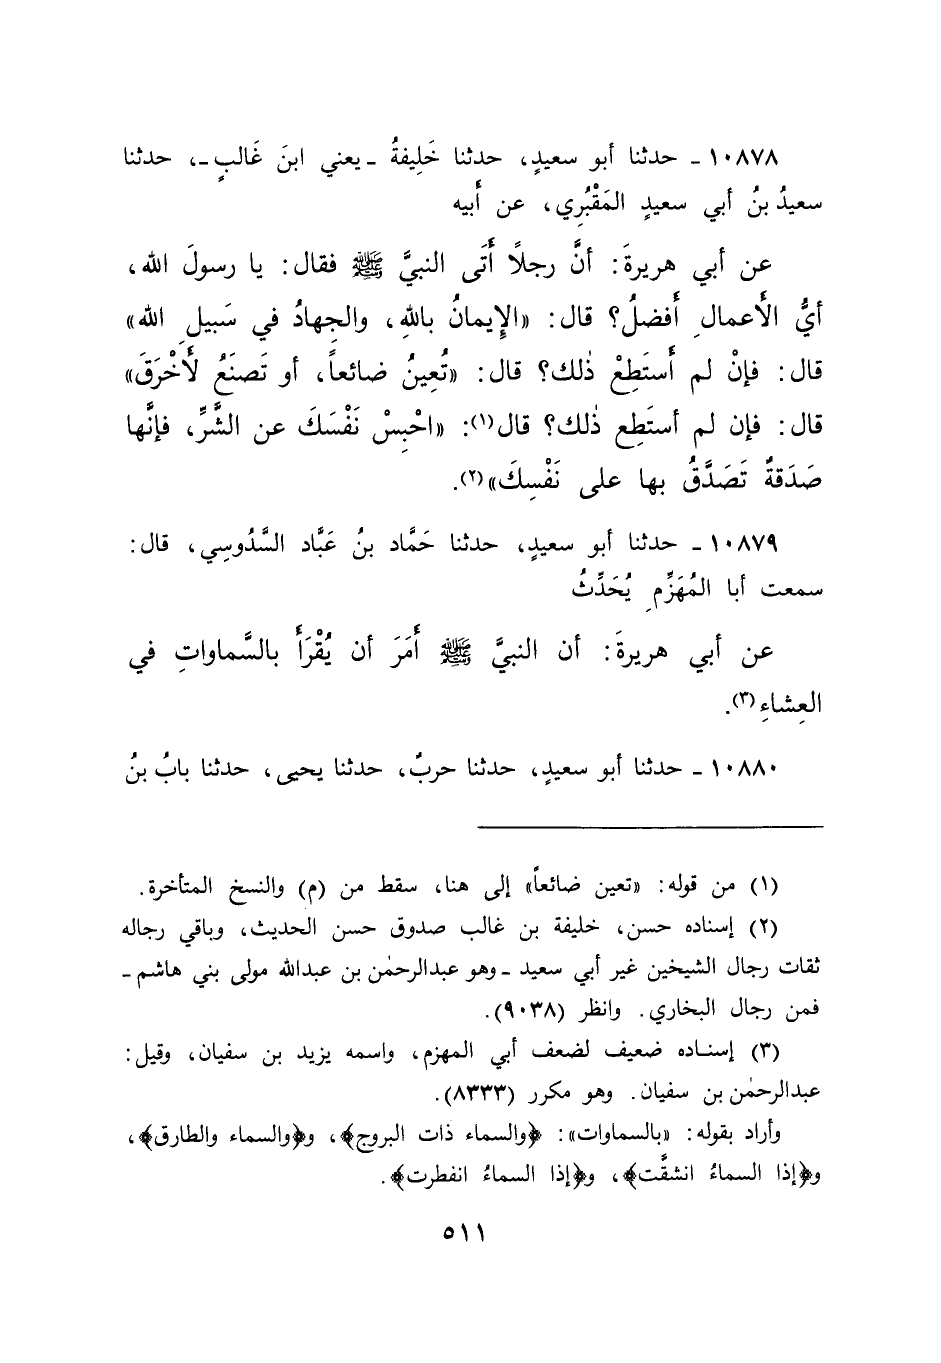 ١٠٨٧٨ ـ حدثنا أبو سعيدٍ، حدثنا خَلِيفةُ ـ يعني ابنَ غَالبٍ ـ، حدثنا
سعيدُ بنُ أبي سعيدٍ المَقْبُرِي، عن أَبيه
عن أبي هريرةَ: أنَّ رجلًا أَتَى النبيَّ ﷺ فقال: يا رسولَ الله،
أيُّ الأَعمالِ أَفضلُ؟ قال: «الإِيمانُ باللهِ، والجِهادُ في سَبيلِ الله»
قال: فإنْ لم أَستَطِعْ ذٰلك؟ قال: «تُعِينُ ضائعاً، أو تَصنَعُ لأَخْرَقَ»
قال: فإن لم أستَطِع ذٰلك؟ قال(١): «احْبِسْ نَفْسَكَ عن الشَّرِّ، فإنَّها
صَدَقةٌ تَصَدَّقُ بها على نَفْسِكَ»(٢).
١٠٨٧٩ ـ حدثنا أبو سعيدٍ، حدثنا حَمَّاد بنُ عَبَّاد السَّدُوسِي، قال:
سمعت أبا المُهَزِّمِ يُحَدِّثُ
عن أبي هريرةَ: أن النبيَّ ﷺ أَمَرَ أن يُقْرَأَ بالسَّماواتِ في
العِشاءِ(٣).
١٠٨٨٠ ـ حدثنا أبو سعيدٍ، حدثنا حربٌ، حدثنا يحيى، حدثنا بابُ بنُ
(١) من قوله: «تعين ضائعاً» إلى هنا، سقط من (م) والنسخ المتأخرة.
(٢) إسناده حسن، خليفة بن غالب صدوق حسن الحديث، وباقي رجاله
ثقات رجال الشيخين غير أبي سعيد ـ وهو عبدالرحمٰن بن عبدالله مولى بني هاشم ـ
فمن رجال البخاري. وانظر (٩٠٣٨).
(٣) إسناده ضعيف لضعف أبي المهزم، واسمه يزيد بن سفيان، وقيل:
عبدالرحمٰن بن سفيان. وهو مكرر (٨٣٣٣).
وأراد بقوله: «بالسماوات»: ﴿والسماء ذات البروج﴾، و﴿والسماء والطارق﴾،
و﴿إذا السماءُ انشقَّت﴾، و﴿إذا السماءُ انفطرت﴾.
٥١١